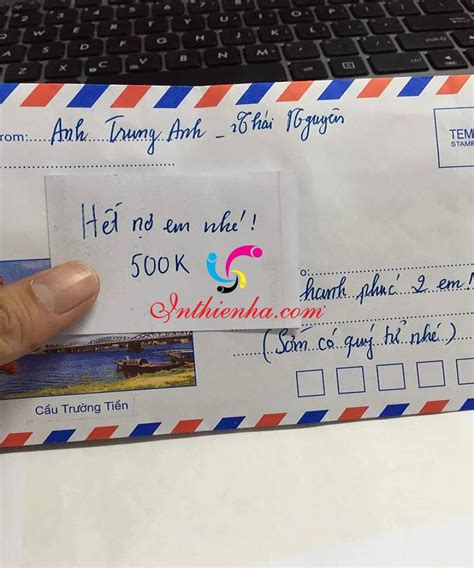 From: Anh Trung Anh - Thái Nguyên
TEM
STAMP
Hết nợ em nhé!
500K
Inthienha.com
hanh phúc 2 em!
(Sớm có quý tử nhé)
Cầu Trường Tiền